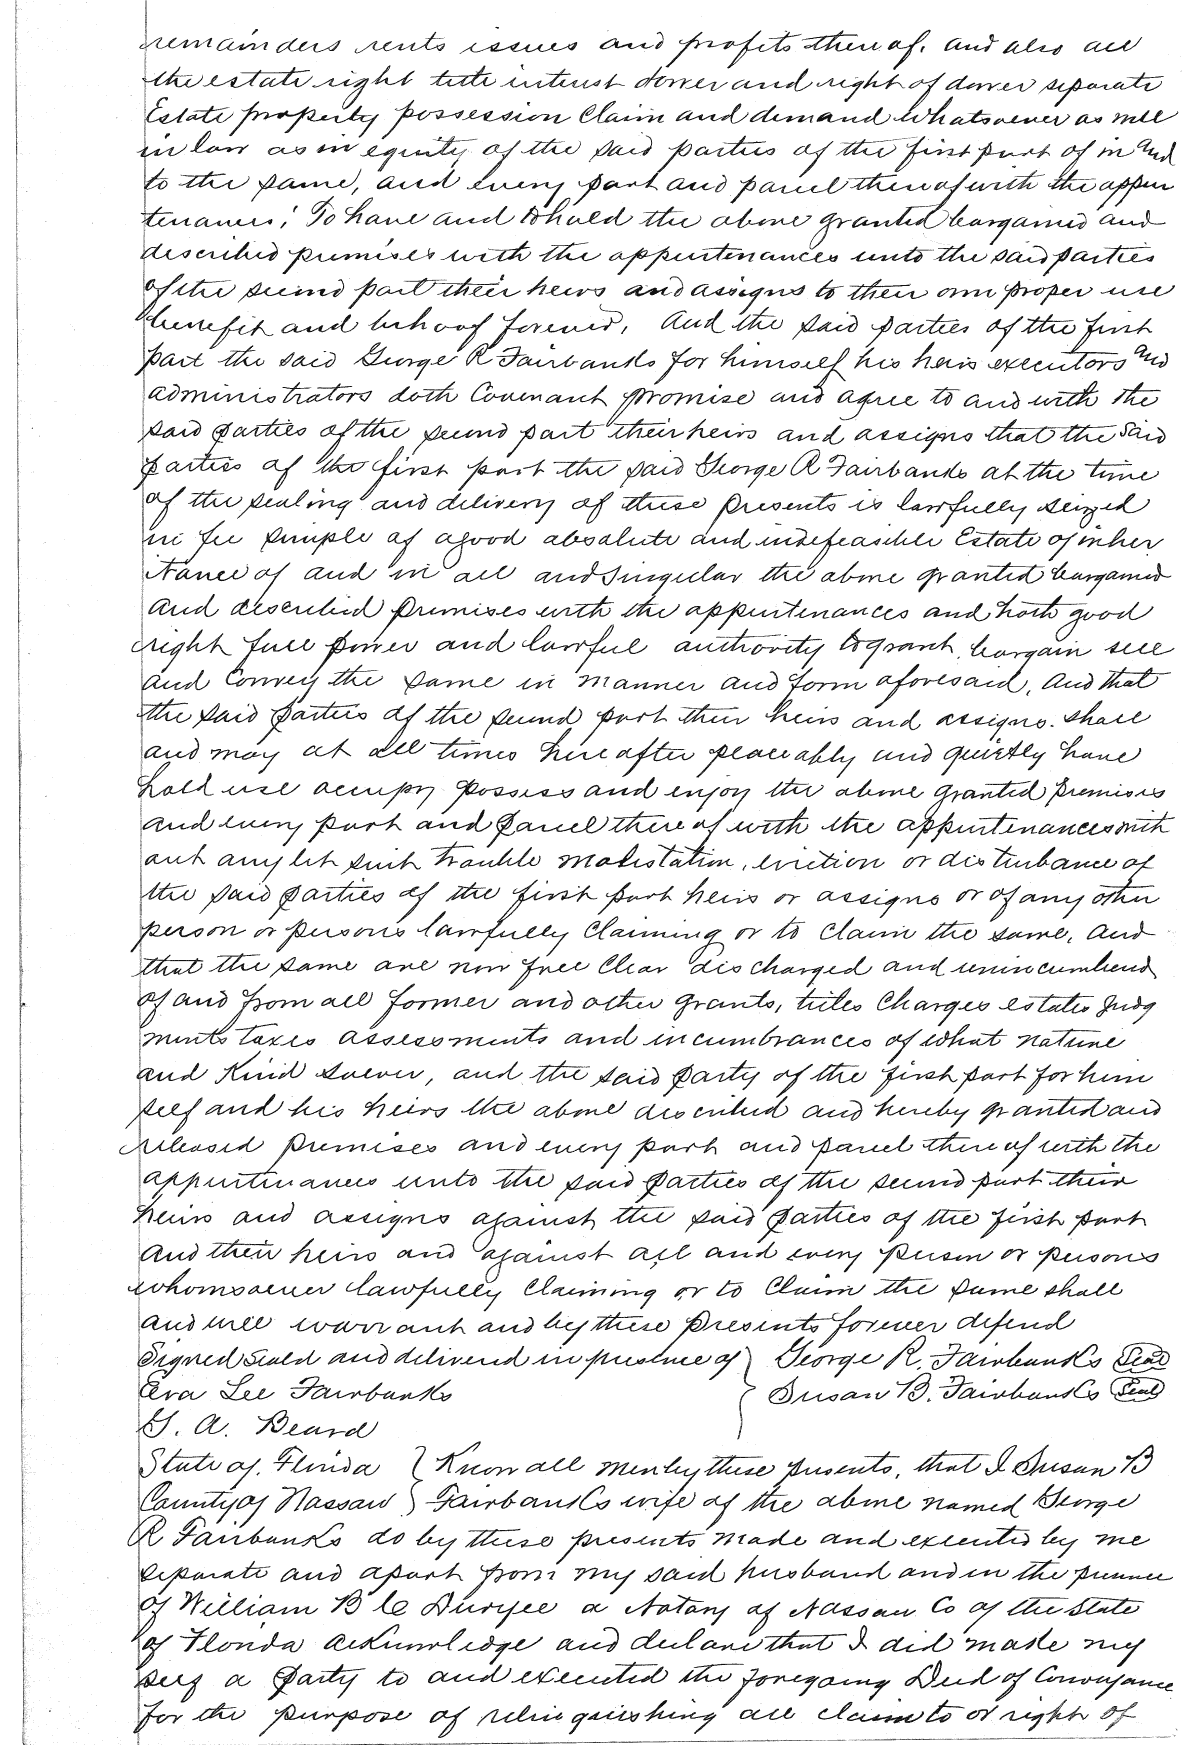 remainders rents issues and profits thereof. and also all
the estate right title interest dower and right of dower separate
Estate property possession Claim and demand whatsoever as well
in law as in equity of the said parties of the first part of in and
to the same, and every part and parcel thereof with the appur
tenances; To have and to hold the above granted bargained and
described premises with the appurtenances unto the said parties
of the second part their heirs and assigns to their own proper use
benefit and behoof forever. And the said parties of the first
part the said George R Fairbanks for himself his heirs executors and
administrators doth Covenant promise and agree to and with the
said parties of the second part their heirs and assigns that the said
parties of the first part the said George R Fairbanks at the time
of the sealing and delivery of these presents is lawfully seized
in fee simple of a good absolute and indefeasible Estate of inher
itance of and in all and singular the above granted bargained
and described premises with the appurtenances and hath good
right full power and lawful authority to grant, bargain sell
and Convey the same in manner and form aforesaid, And that
the said parties of the second part their heirs and assigns. shall
and may at all times hereafter peaceably and quietly have
hold use occupy possess and enjoy the above granted premises
and every part and parcel thereof with the appurtenances with
out any let suit trouble molestation, eviction or disturbance of
the said parties of the first part heirs or assigns or of any other
person or persons lawfully Claiming or to Claim the same, And
that the same are now free Clear discharged and unincumbered
of and from all former and other grants, titles Charges estates Judg
ments taxes assessments and incumbrances of what nature
and Kind soever, and the said party of the first part for him
self and his heirs the above described and hereby granted and
released premises and every part and parcel thereof with the
appurtenances unto the said parties of the second part their
heirs and assigns against the said parties of the first part
And their heirs and against all and every person or persons
whomsoever lawfully Claiming or to Claim the same shall
and will warrant and by these presents forever defend
Signed Seald and delivered in presence of } George R. Fairbanks Seal
Eva Lee Fairbanks } Susan B. Fairbanks Seal
G. A. Beard
State of Florida } Know all men by these presents, that I Susan B
County of Nassau } Fairbanks wife of the above named George
R Fairbanks do by these presents made and executed by me
separate and apart from my said husband and in the presence
of William B C Duryee a Notary of Nassau Co of the State
of Florida acknowledge and declare that I did make my
self a Party to and executed the foregoing Deed of Conveyance
for the purpose of relinquishing all claim to or right of